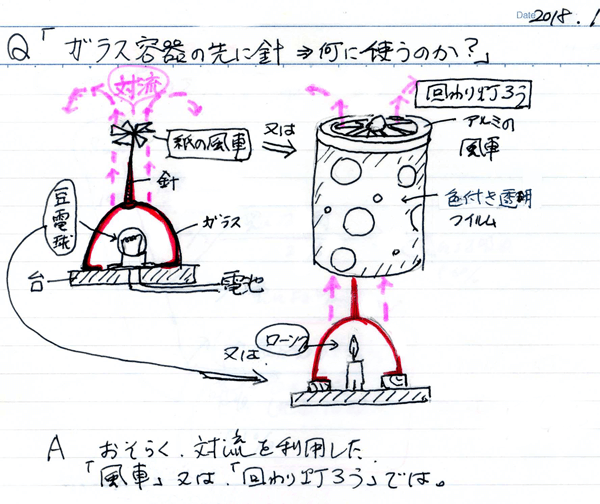 Date 2018.1
Q「ガラス容器の先に針⇒何に使うのか?」
対流
回わり灯ろう
紙の風車
又は
アルミの
風車
針
豆電球
ガラス
色付き透明
フィルム
台
電池
ローソク
又は
A おそらく、対流を利用した、
「風車」又は、「回わり灯ろう」では。